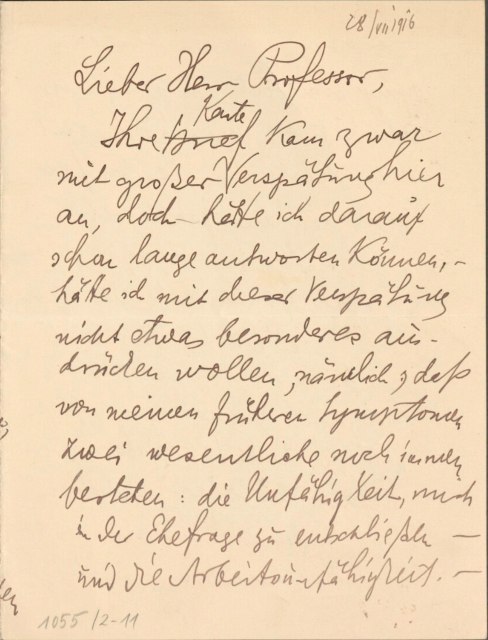 28/VII 1916
Lieber Herr Professor,
Karte
Ihre Brief kam zwar
mit großer Verspätung hier
an, doch hätte ich darauf
schon lange antworten können, –
hätte ich mit dieser Verspätung
nicht etwas besonderes aus-
drücken wollen, nämlich, daß
von meinen früheren Symptomen
zwei wesentliche noch immer
bestehen: die Unfähigkeit, mich
in der Ehefrage zu entschließen —
und die Arbeitsunfähigkeit. —
1055/2-11